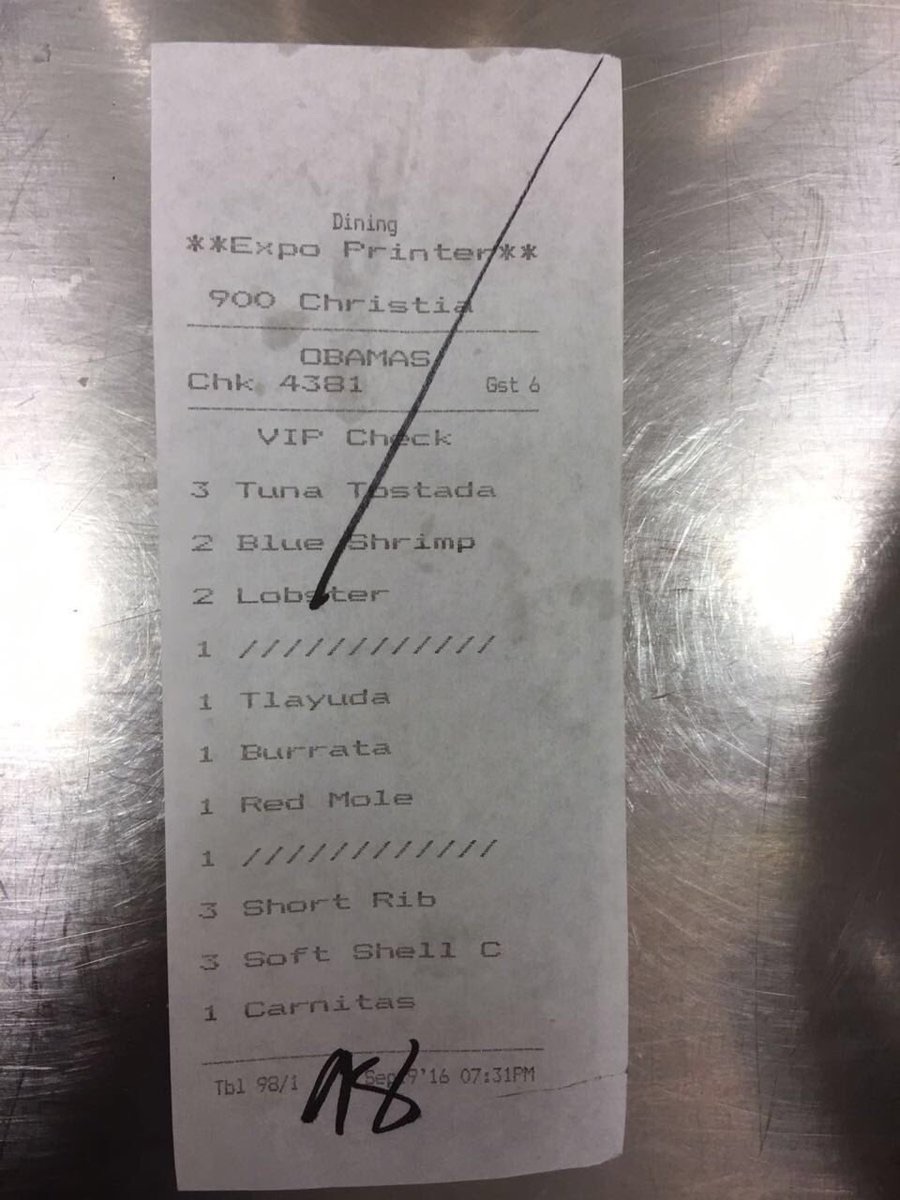 Dining
**Expo Printer**
900 Christia
OBAMAS
Chk 4381 Gst 6
VIP Check
3 Tuna Tostada
2 Blue Shrimp
2 Lobster
1 ////////////
1 Tlayuda
1 Burrata
1 Red Mole
1 ////////////
3 Short Rib
3 Soft Shell C
1 Carnitas
Tbl 98/1 Sep 9'16 07:31PM